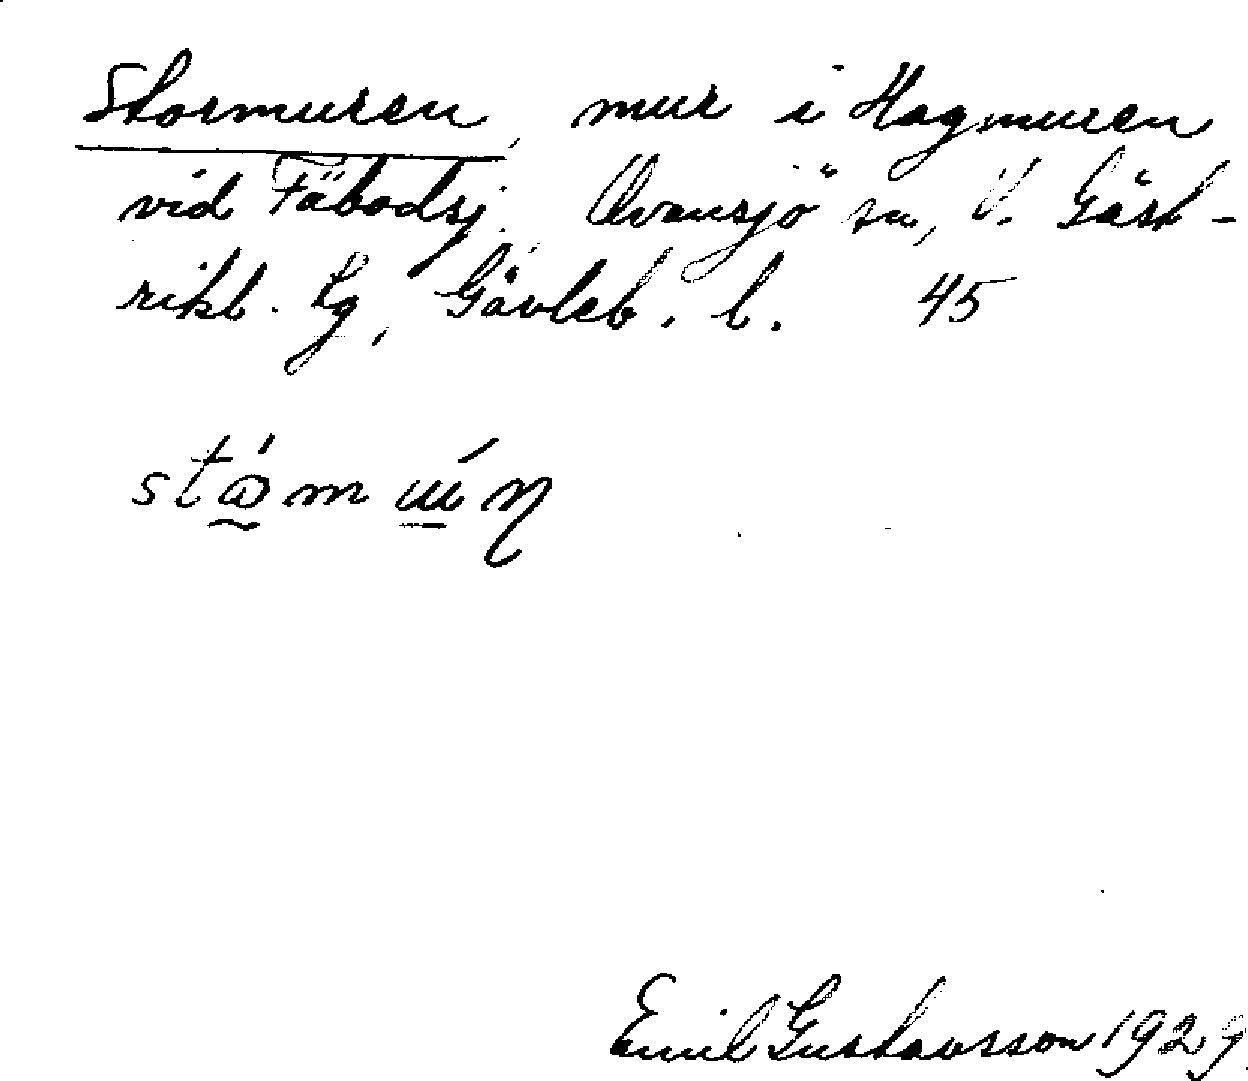 Stormuren, mur i Hagmuren
vid Fäbodsj. Ovansjö sn, V. Gäst-
rikl. Lg, Gävleb. l. 45
Emil Gustavsson 1929